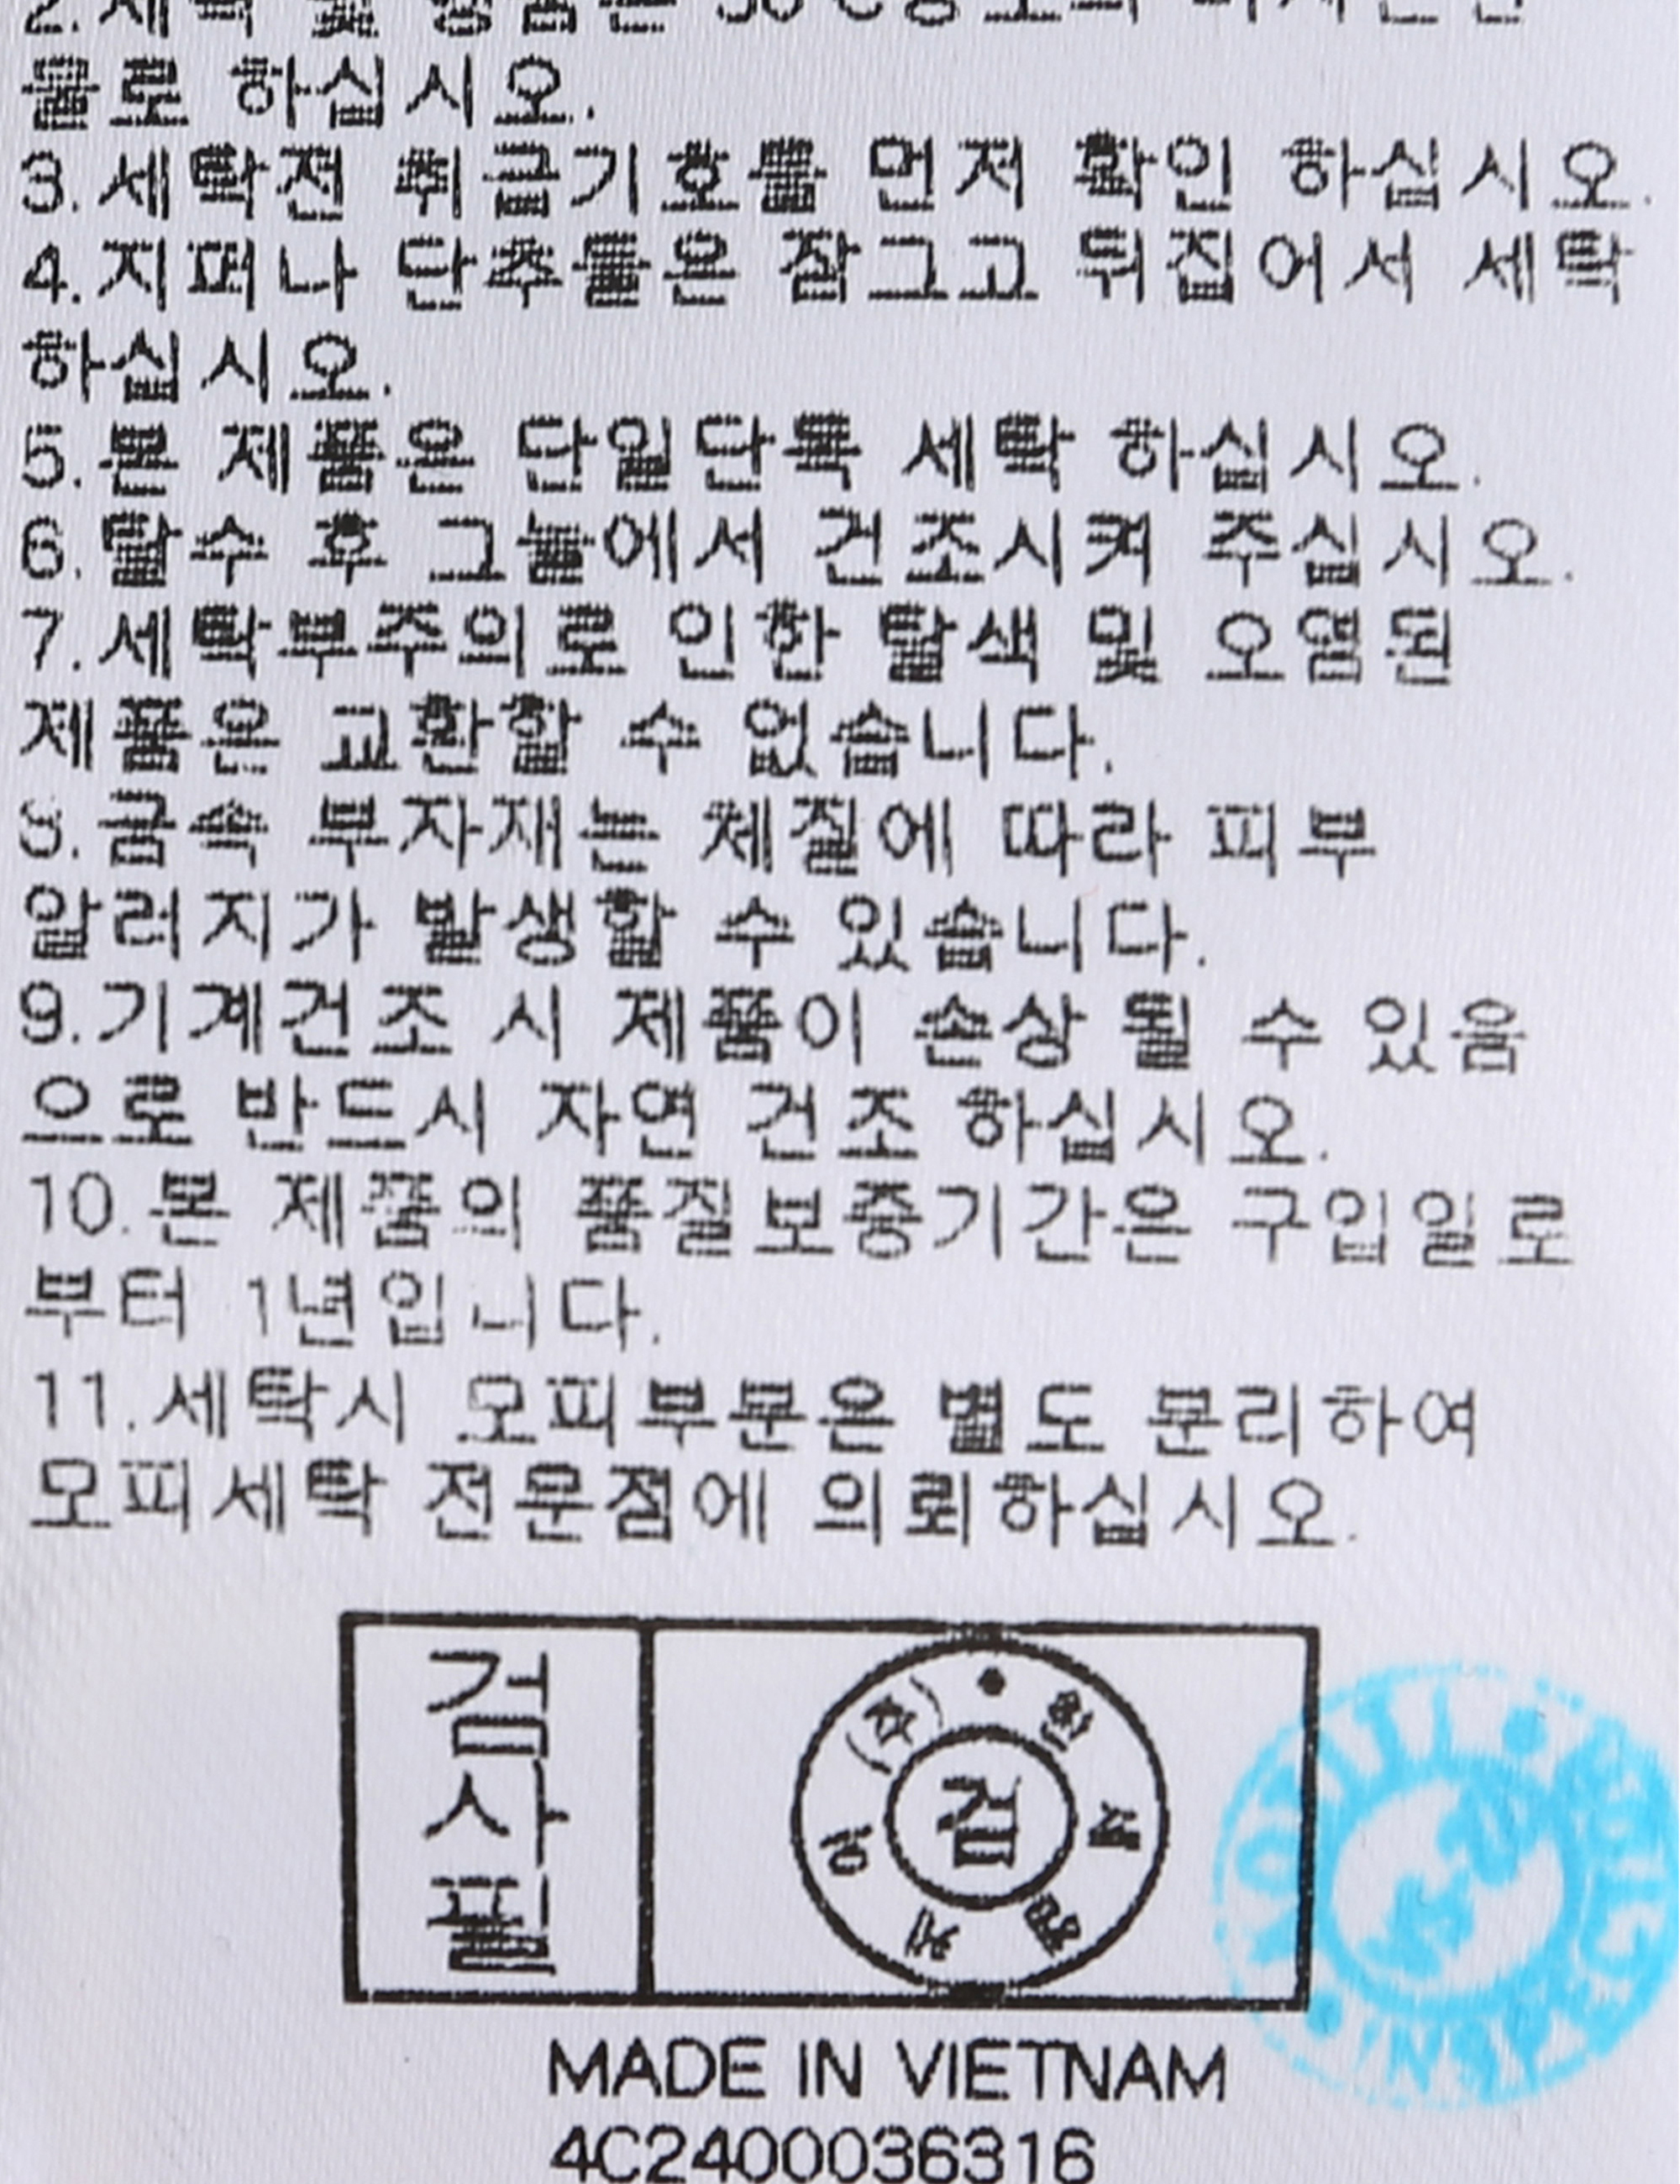 물로 하십시오.
3.세탁전 취급기호를 먼저 확인 하십시오.
4.지퍼나 단추들은 잠그고 뒤집어서 세탁
하십시오.
5.본 제품은 단일단독 세탁 하십시오.
6.탈수 후 그늘에서 건조시켜 주십시오.
7.세탁부주의로 인한 탈색 및 오염된
제품은 교환할 수 없습니다.
8.금속 부자재는 체질에 따라 피부
알러지가 발생할 수 있습니다.
9.기계건조 시 제품이 손상 될 수 있음
으로 반드시 자연 건조 하십시오.
10.본 제품의 품질보증기간은 구입일로
부터 1년입니다.
11.세탁시 모피부분은 별도 분리하여
모피세탁 전문점에 의뢰하십시오.
검
사
필
검
MADE IN VIETNAM
4C2400036316